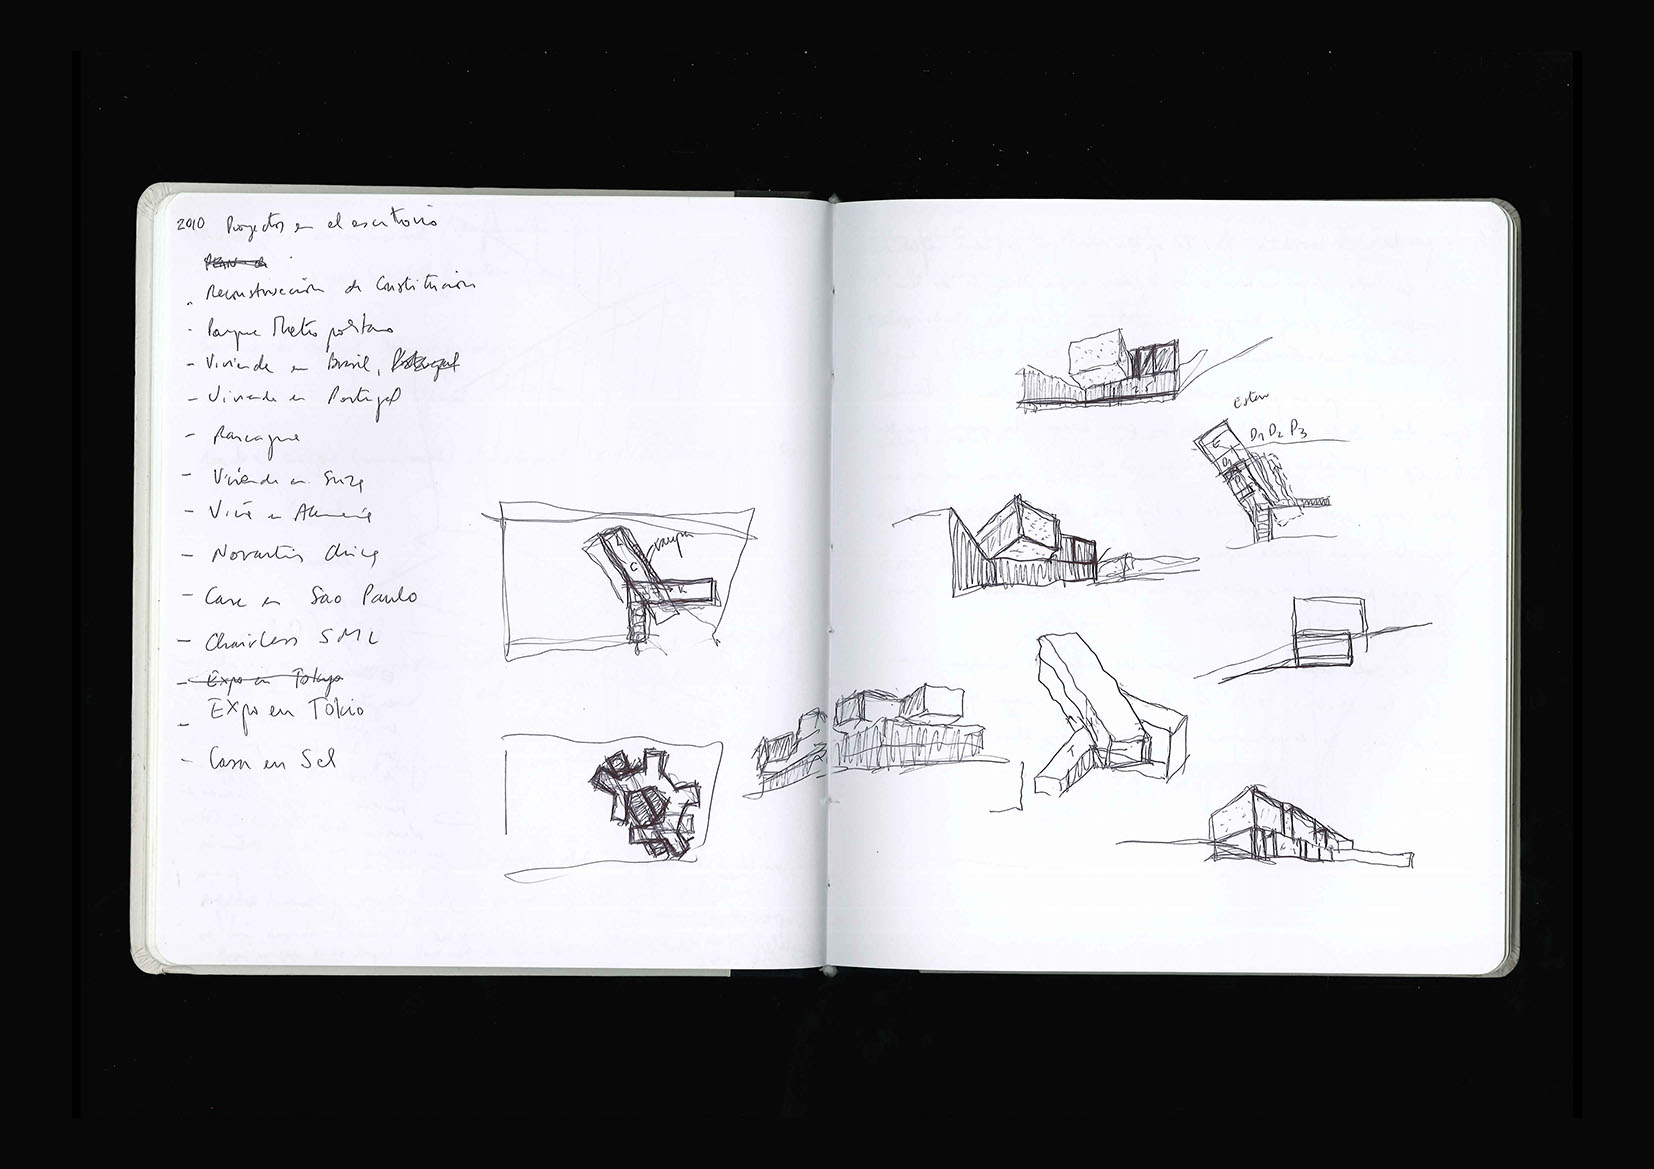 2010 Proyectos en el escritorio
Plan de
- Reconstrucción de Constitución
- Parque Metropolitano
- Vivienda en Brasil, Portugal
- Vivienda en Portugal
- Vivienda en Suiza
- Novartis China
- Casa en Sao Paulo
- Chairless SML
- Expo en Tokyo
- Expo en Tokio
- Casa en
C
K
Estar
D1 D2 D3
E
D1